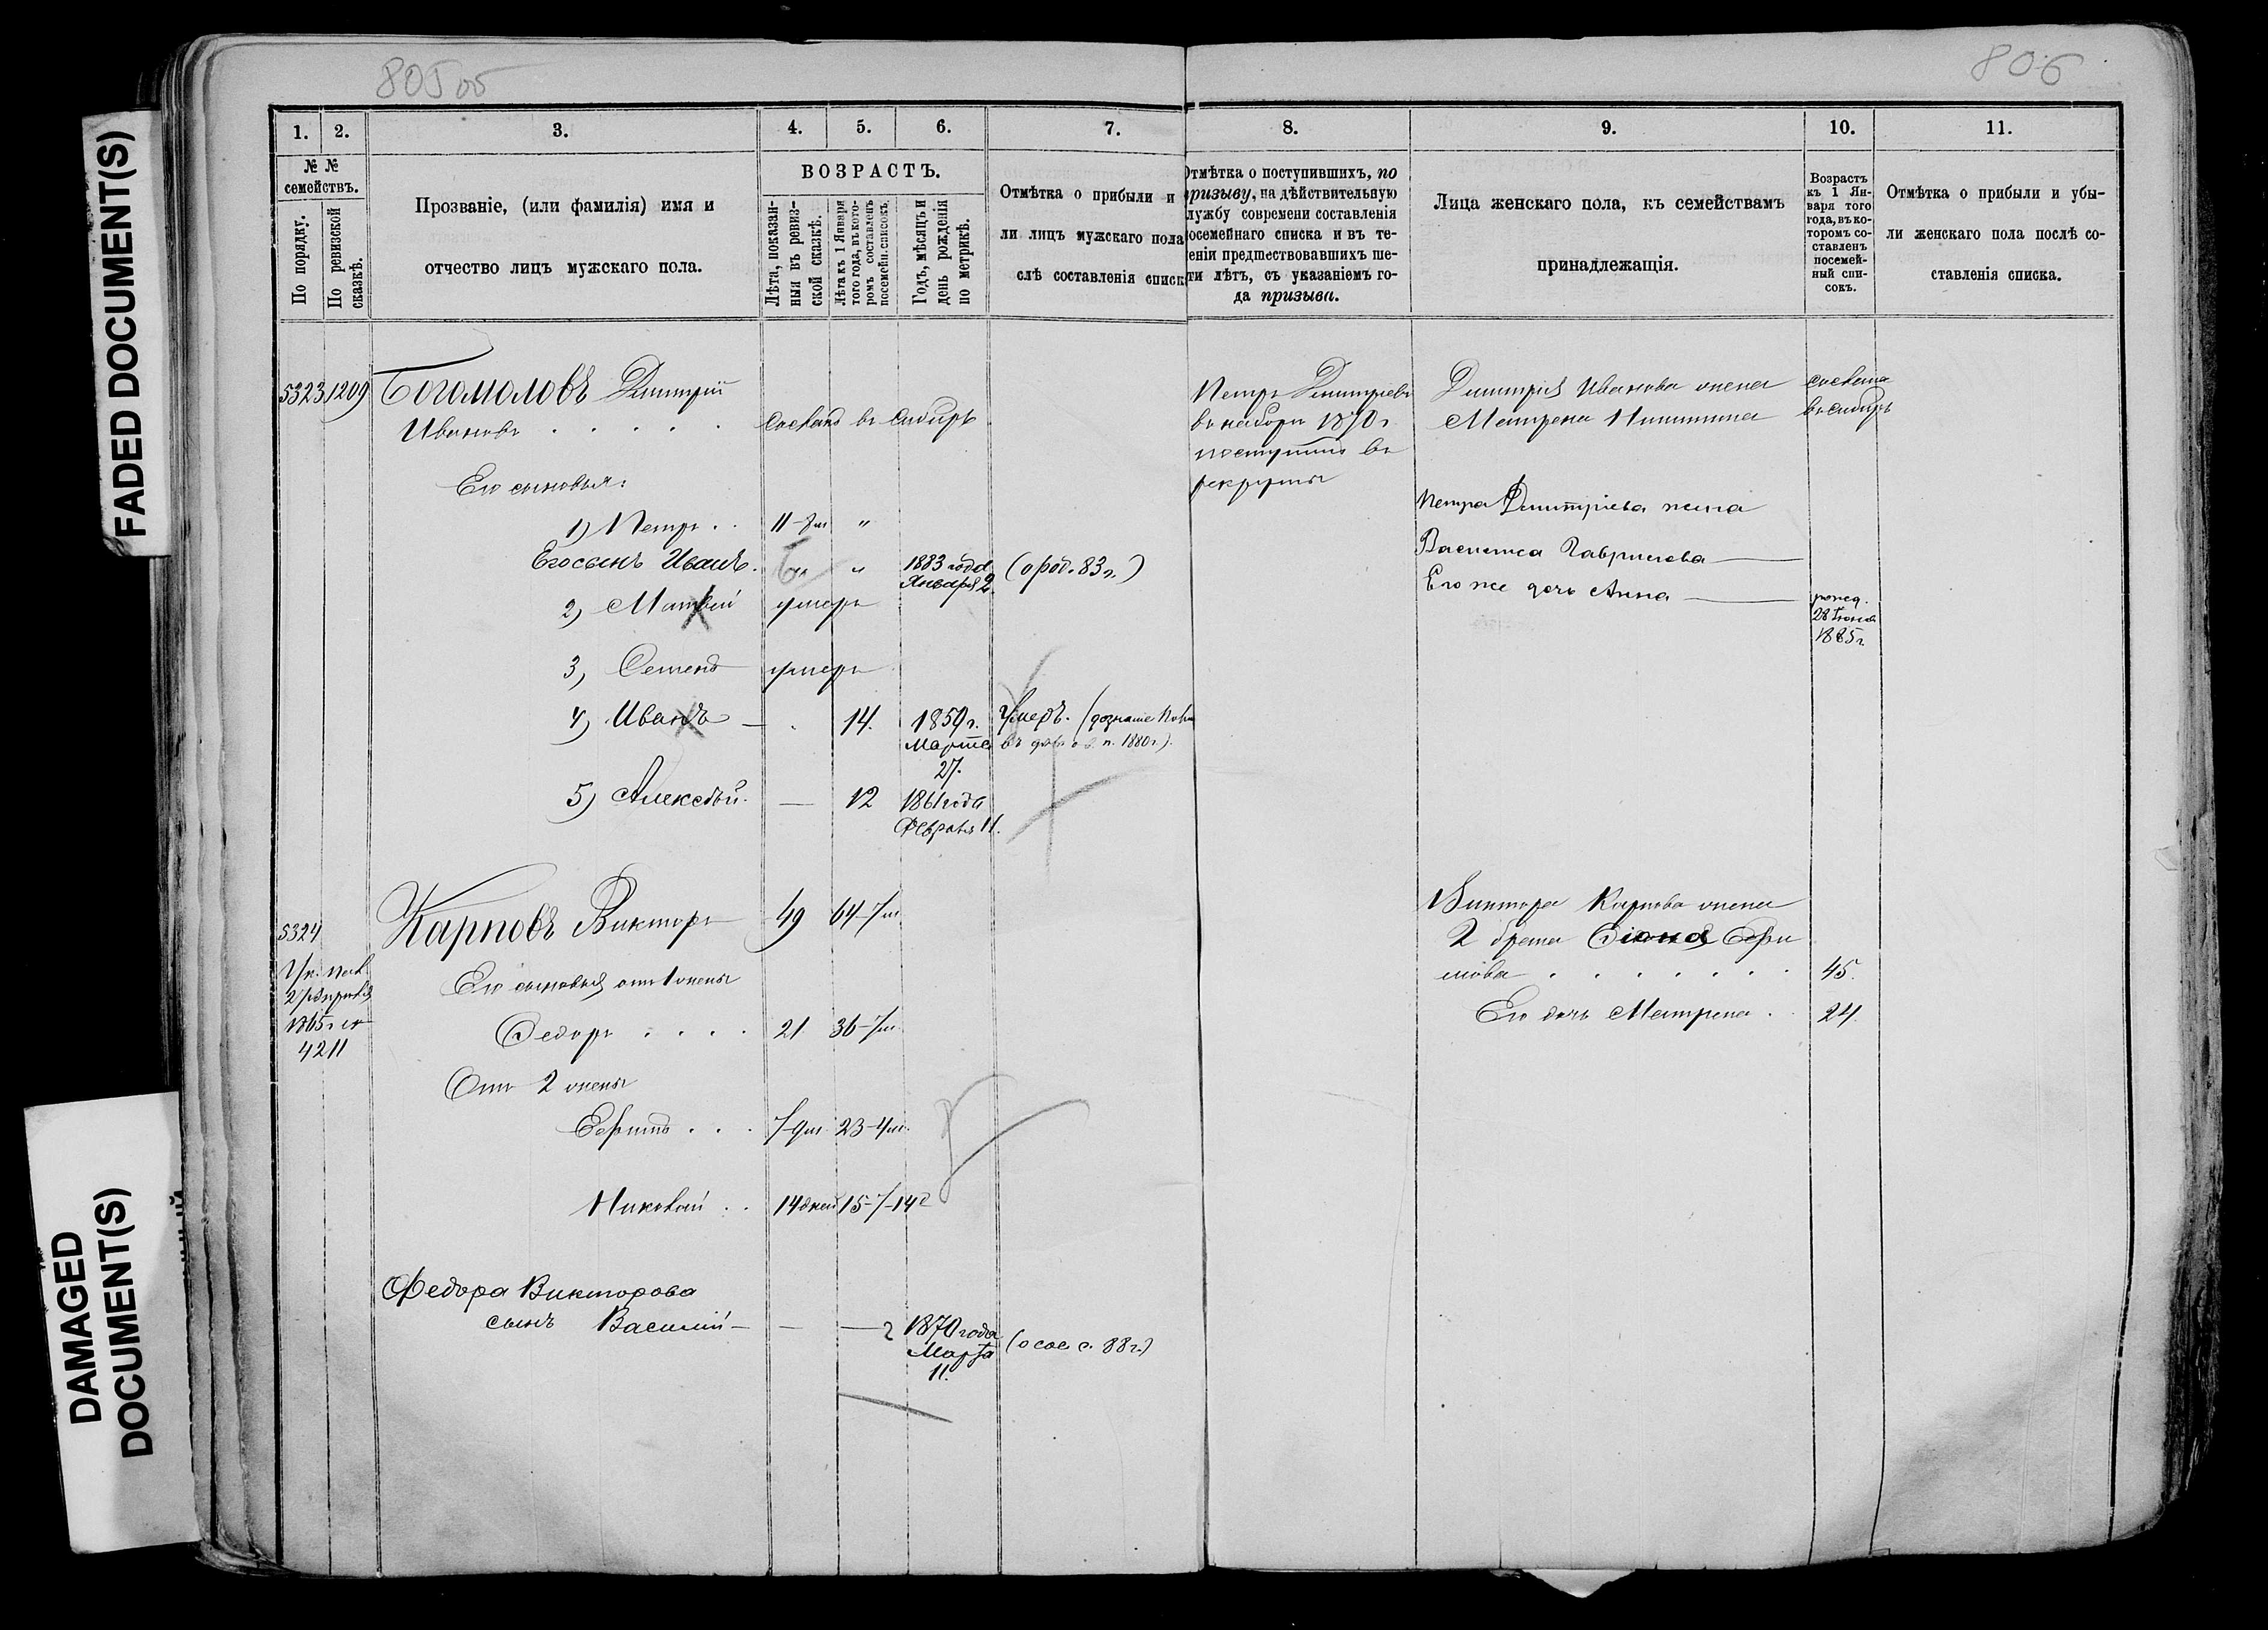 805 об
806
FADED DOCUMENT(S)
DAMAGED DOCUMENT(S)
1.
2.
3.
4.
5.
6.
7.
8.
9.
10.
11.
№ №
семействъ.
По порядку.
По ревизской
сказкѣ.
Прозваніе, (или фамилія) имя и
отчество лицъ мужскаго пола.
ВОЗРАСТЪ.
Лѣта, показан-
ныя въ ревиз-
ской сказкѣ.
Лѣта къ 1 Января
того года, въ кото-
ромъ составленъ
посемейн. списокъ.
Годъ, мѣсяцъ и
день рожденія
по метрикѣ.
Отмѣтка о прибыли и
ли лицъ мужскаго пола
слѣ составленія списк
Отмѣтка о поступившихъ, по
призыву, на дѣйствительную
лужбу современи составленія
осемейнаго списка и въ те-
еніи предшествовавшихъ ше-
ти лѣтъ, съ указаніемъ го-
да призыва.
Лица женскаго пола, къ семействамъ
принадлежащія.
Возрастъ
къ 1 Ян-
варя того
года, въ ко-
торомъ со-
ставленъ
посемей-
ный спи-
сокъ.
Отмѣтка о прибыли и убы-
ли женскаго пола послѣ со-
ставленія списка.
5323 1209 Богомоловъ Дмитрій
Ивановъ . . . . . сосланъ въ сибирь
Его сыновья:
1) Петръ . . 11-8м "
Его сынъ Иванъ. " 1883 года Января 2 (о род. 83 г.)
2) Матвѣй умеръ
3) Семенъ умеръ
4) Иванъ — . 14. 1859 г. Марта 27. Умеръ. (дознаніе
1880 г.).
5) Алексѣй. — 12 1861 года Февраля 11.
Петръ Дмитріевъ
въ наборъ 1870 г.
поступилъ въ
рекруты
Дмитрія Иванова жена сослана
Матрена Никитина въ сибирь
Петра Дмитріева жена
Василиса Гаврилова —
Его же дочь Анна — рожд.
28 Іюня
1885 г.
5324 Карповъ Викторъ 49 64-7м
Его сыновья отъ 1 жены
1865 г.
4211
Федоръ . . . . 21 36-7м.
Отъ 2 жены
Ефимъ . . . 7-9м. 23-4м.
Николай . . 14 дней 15-7-14д
Федора Викторова
сынъ Василій — — — 1870 года
Марта
11.
(88 г.)
Виктора Карпова жена
2 брака
мова . . . . . . . 45.
Его дочь Матрена . 24.